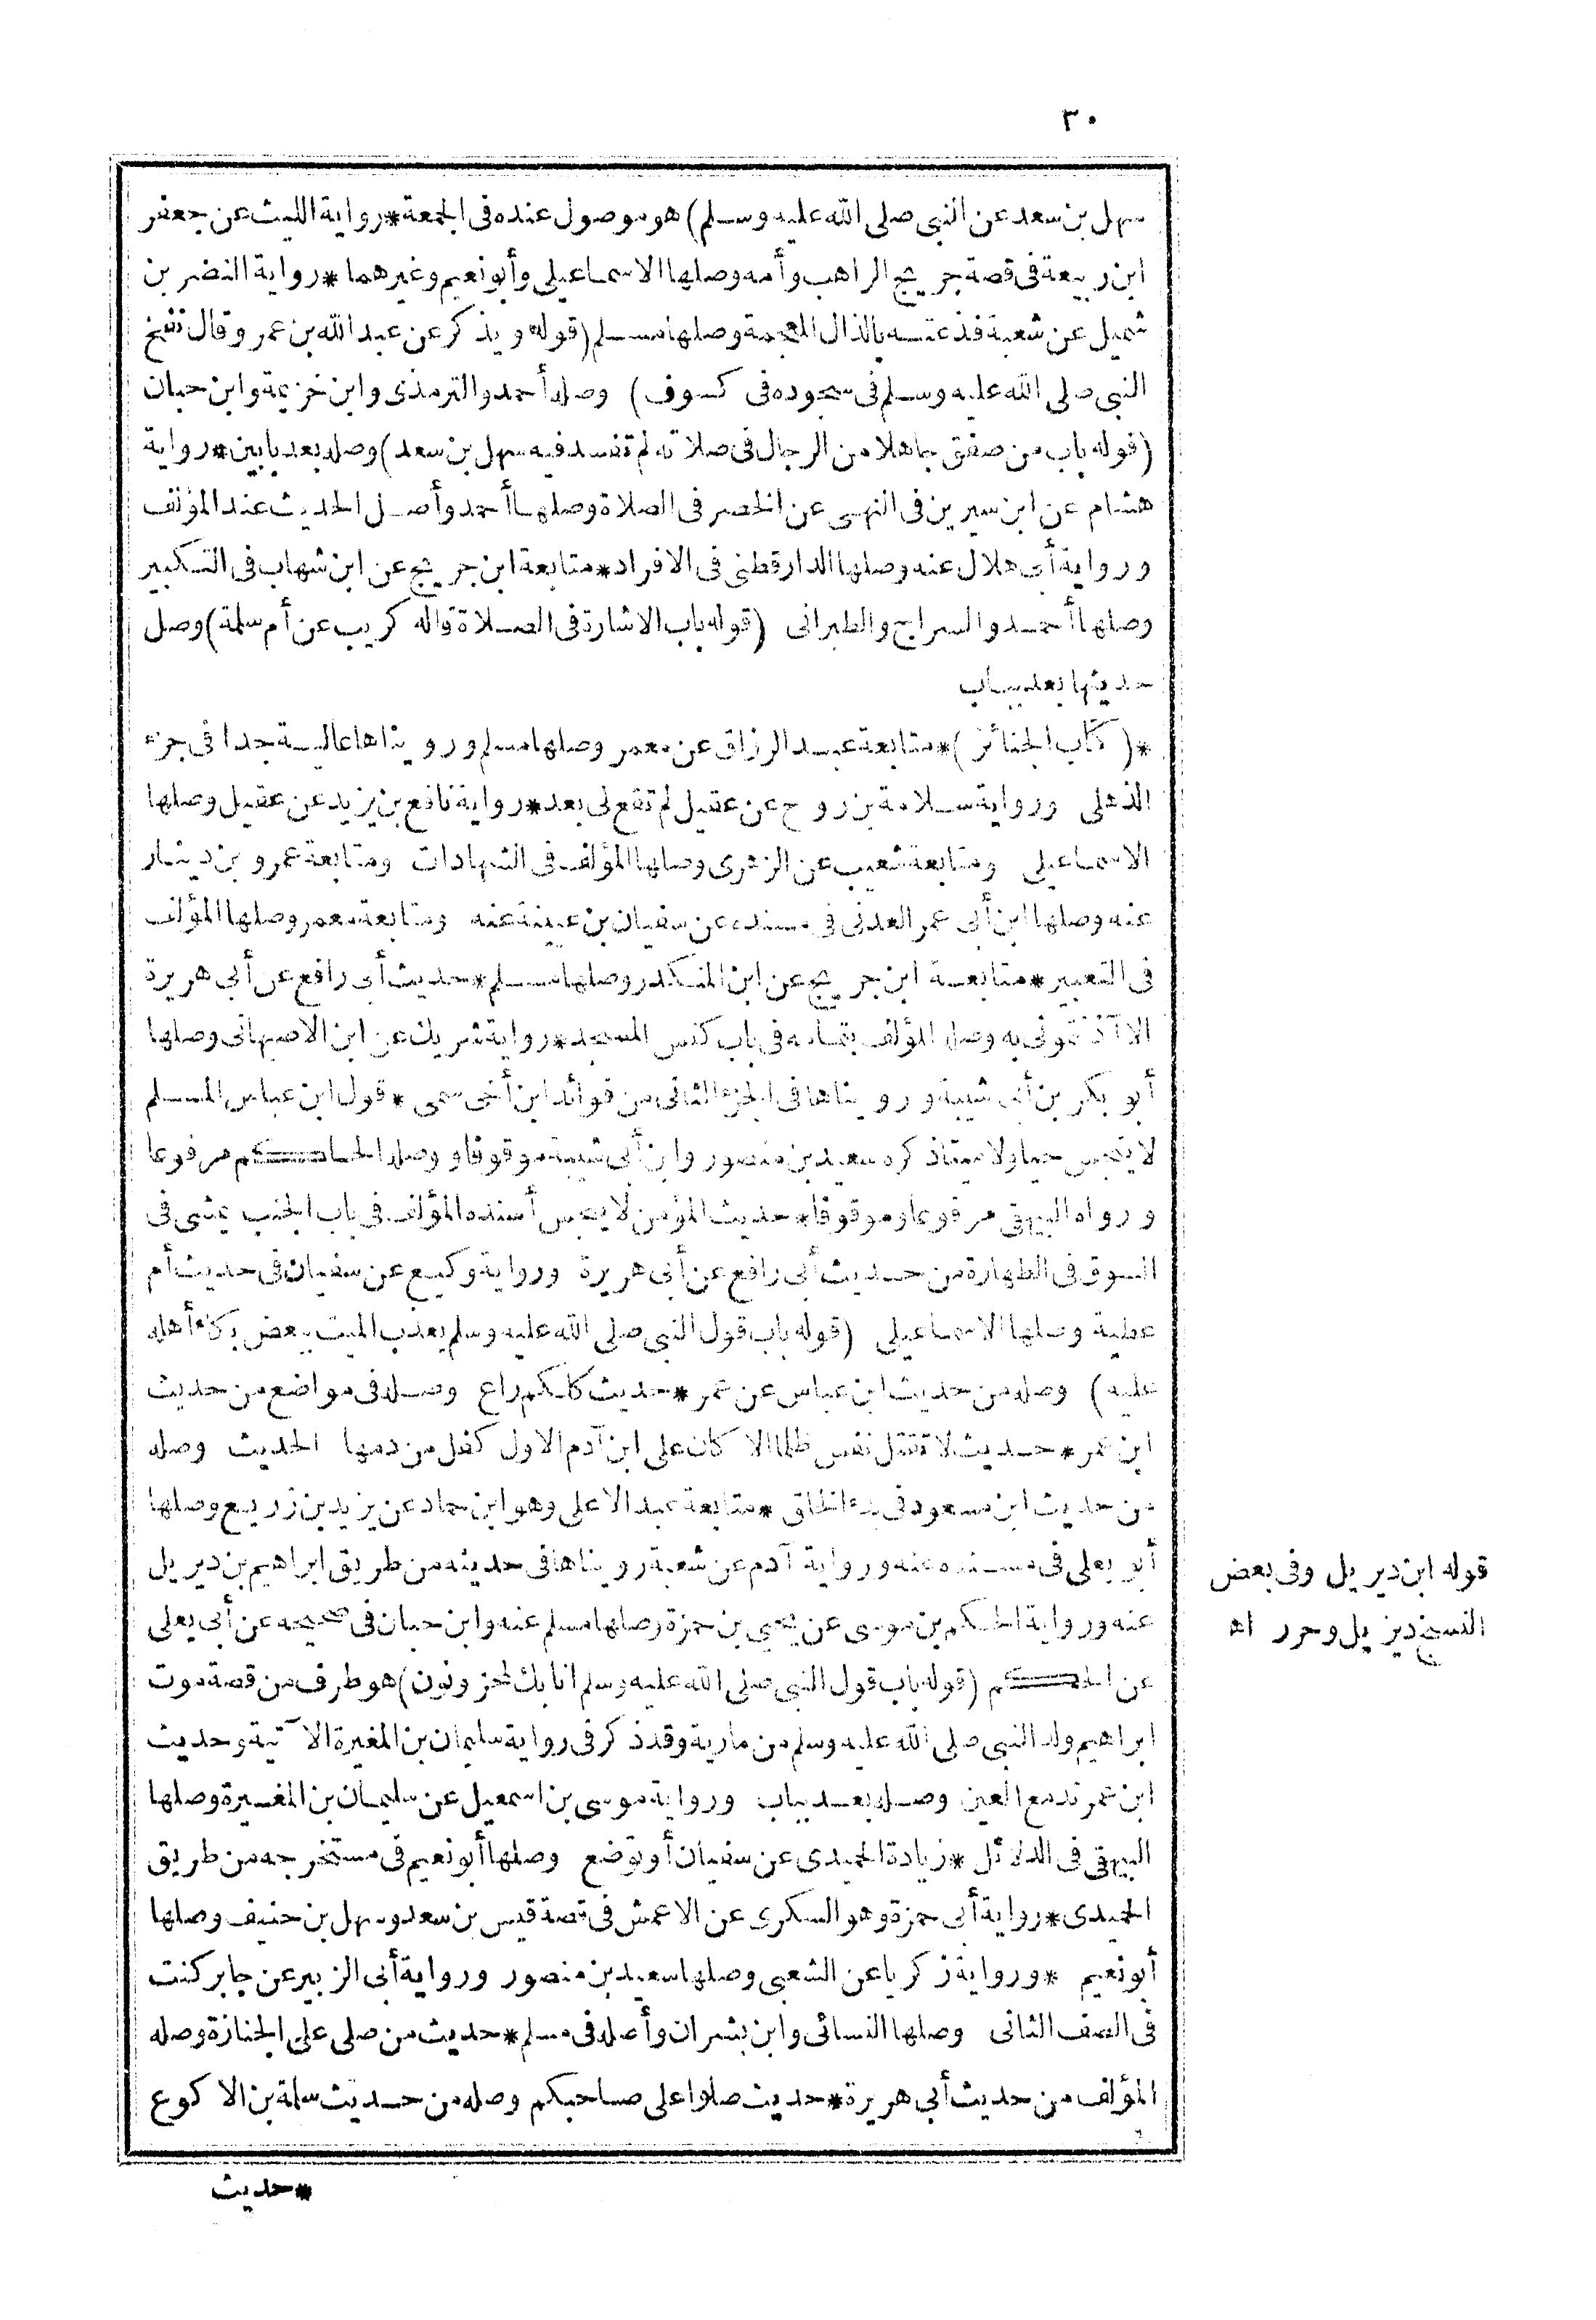 ٣٠
سهل بن سعد عن النبي صلى الله عليه وسلم) هو موصول عنده فى الجمعة * رواية الليث عن جعفر
ابن ربيعة فى قصة جريج الراهب وأمه وصلها الاسماعيلى وأبو نعيم وغيرهما * رواية النضر بن
شميل عن شعبة فذعته بالذال المعجمة وصلها مسلم (قوله ويذكر عن عبد الله بن عمرو قال نفخ
النبى صلى الله عليه وسلم فى سجوده فى كسوف) وصله أحمد والترمذى وابن خزيمة وابن حبان
(قوله باب من صفق جاهلا من الرجال فى صلاته لم تفسد فيه سهل بن سعد) وصله بعد بابين * رواية
هشام عن ابن سيرين فى النهى عن الخصر فى الصلاة وصلها أحمد وأصل الحديث عند المؤلف
ورواية أبى هلال عنه وصلها الدارقطنى فى الافراد * متابعة ابن جريج عن ابن شهاب فى التكبير
وصلها أحمد والسراج والطبرانى (قوله باب الاشارة فى الصلاة قاله كريب عن أم سلمة) وصل
حديثها بعد بباب
* (كتاب الجنائز) * متابعة عبد الرزاق عن معمر وصلها مسلم ورويناها عالية جدا فى جزء
الذهلى ورواية سلامة بن روح عن عقيل لم تقع لى بعد * رواية نافع بن يزيد عن عقيل وصلها
الاسماعيلى ومتابعة شعيب عن الزهرى وصلها المؤلف فى الشهادات ومتابعة عمرو بن دينار
عنه وصلها ابن أبى عمر العدنى فى مسنده عن سفيان بن عيينة عنه ومتابعة معمر وصلها المؤلف
فى التعبير * متابعة ابن جريج عن ابن المنكدر وصلها مسلم * حديث أبى رافع عن أبى هريرة
الا آذنتمونى به وصله المؤلف بتمامه فى باب كنس المسجد * رواية شريك عن ابن الاصبهانى وصلها
أبو بكر بن أبى شيبة ورويناها فى الجزء الثانى من فوائد ابن أخى سمى * قول ابن عباس المسلم
لا ينجس حيا ولا ميتا ذكره سعيد بن منصور وابن أبى شيبة موقوفا ووصله الحاكم مرفوعا
ورواه البيهقى مرفوعا وموقوفا * حديث المؤمن لا ينجس أسنده المؤلف فى باب الجنب يمشى فى
السوق فى الطهارة من حديث أبى رافع عن أبى هريرة ورواية وكيع عن سفيان فى حديث أم
عطية وصلها الاسماعيلى (قوله باب قول النبى صلى الله عليه وسلم يعذب الميت ببعض بكاء أهله
عليه) وصله من حديث ابن عباس عن عمر * حديث كلكم راع وصله فى مواضع من حديث
ابن عمر * حديث لا تقتل نفس ظلما الا كان على ابن آدم الاول كفل من دمها الحديث وصله
من حديث ابن مسعود فى بدء الخلق * متابعة عبد الاعلى وهو ابن حماد عن يزيد بن زريع وصلها
أبو يعلى فى مسنده عنه ورواية آدم عن شعبة رويناها فى حديثه من طريق ابراهيم بن ديريل
عنه ورواية الحكم بن موسى عن يحيى بن حمزة وصلها مسلم عنه وابن حبان فى صحيحه عن أبى يعلى
عن الحكم (قوله باب قول النبى صلى الله عليه وسلم انا بك لمحزونون) هو طرف من قصة موت
ابراهيم ولد النبى صلى الله عليه وسلم من مارية وقد ذكر فى رواية سليمان بن المغيرة الآتية وحديث
ابن عمر تدمع العين وصله بعد بباب ورواية موسى بن اسمعيل عن سليمان بن المغيرة وصلها
البيهقى فى الدلائل * زيادة الحميدى عن سفيان أو توضع وصلها أبو نعيم فى مستخرجه من طريق
الحميدى * رواية أبى حمزة وهو السكرى عن الاعمش فى قصة قيس بن سعد وسهل بن حنيف وصلها
أبو نعيم * ورواية زكريا عن الشعبى وصلها سعيد بن منصور ورواية أبى الزبير عن جابر كنت
فى الصف الثانى وصلها النسائى وابن بشران وأصله فى مسلم * حديث من صلى على الجنازة وصله
المؤلف من حديث أبى هريرة * حديث صلوا على صاحبكم وصله من حديث سلمة بن الاكوع
* حديث
قوله ابن ديريل وفى بعض
النسخ ديزيل وحرر اه